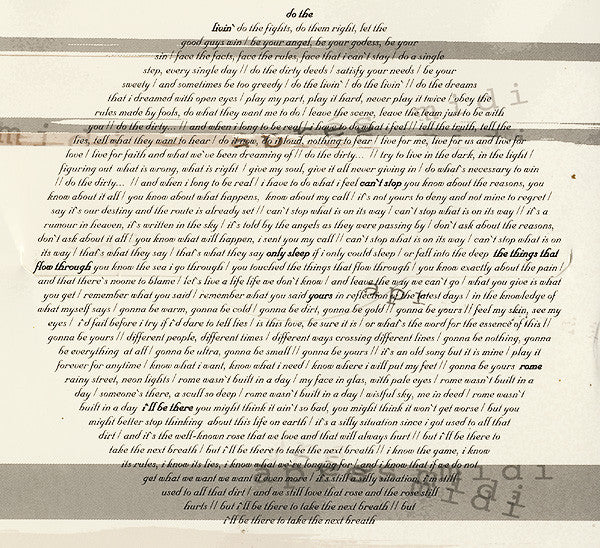 do the
livin` do the fights, do them right, let the
good guys win / be your angel, be your godess, be your
sin / face the facts, face the rules, face that i can't stay / do a single
step, every single day // do the dirty deeds / satisfy your needs / be your
sweety / and sometimes be too greedy / do the livin` / do the livin` // do the dreams
that i dreamed with open eyes / play my part, play it hard, never play it twice / obey the
rules made by fools, do what they want me to do / leave the scene, leave the team just to be with
you // do the dirty... // and when i long to be real / i have to do what i feel / tell the truth, tell the
lies, tell what they want to hear / do it now, do it loud, nothing to fear / live for me, live for us and live for
love / live for faith and what we've been dreaming of // do the dirty... // try to live in the dark, in the light /
figuring out what is wrong, what is right / give my soul, give it all never giving in / do what's necessary to win
// do the dirty... // and when i long to be real / i have to do what i feel can't stop you know about the reasons, you
know about it all / you know about what happens, know about my call / it's not yours to deny and not mine to regret /
say it's our destiny and the route is already set // can't stop what is on its way / can't stop what is on its way // it's a
rumour in heaven, it's written in the sky / it's told by the angels as they were passing by / don't ask about the reasons,
don't ask about it all / you know what will happen, i sent you my call // can't stop what is on its way / can't stop what is on
its way // that's what they say / that's what they say only sleep if i only could sleep / or fall into the deep the things that
flow through you know the sea i go through / you touched the things that flow through / you know exactly about the pain /
and that there's noone to blame / let's live a life life we don't know / and leave the way we can't go / what you give is what
you get / remember what you said / remember what you said yours in reflection of the latest days / in the knowledge of
what myself says / gonna be warm, gonna be cold / gonna be dirt, gonna be gold // gonna be yours // feel my skin, see my
eyes / i'd fail before i try if i'd dare to tell lies / is this love, be sure it is / or what's the word for the essence of this //
gonna be yours // different people, different times / different ways crossing different lines / gonna be nothing, gonna
be everything at all / gonna be ultra, gonna be small // gonna be yours // it's an old song but it is mine / play it
forever for anytime / know what i want, know what i need / know where i will put my feet // gonna be yours rome
rainy street, neon lights / rome wasn't built in a day / my face in glas, with pale eyes / rome wasn't built in a
day / someone's there, a scull so deep / rome wasn't built in a day / wistful sky, me in deed / rome wasn't
built in a day i'll be there you might think it ain't so bad, you might think it won't get worse / but you
might better stop thinking about this life on earth / it's a silly situation since i got used to all that
dirt / and it's the well-known rose that we love and that will always hurt // but i'll be there to
take the next breath / but i'll be there to take the next breath // i know the game, i know
its rules, i know its lies, i know what we're longing for / and i know that if we do not
get what we want we want it even more / it's still a silly situation, i'm still
used to all that dirt / and we still love that rose and the rose still
hurts // but i'll be there to take the next breath // but
i'll be there to take the next breath